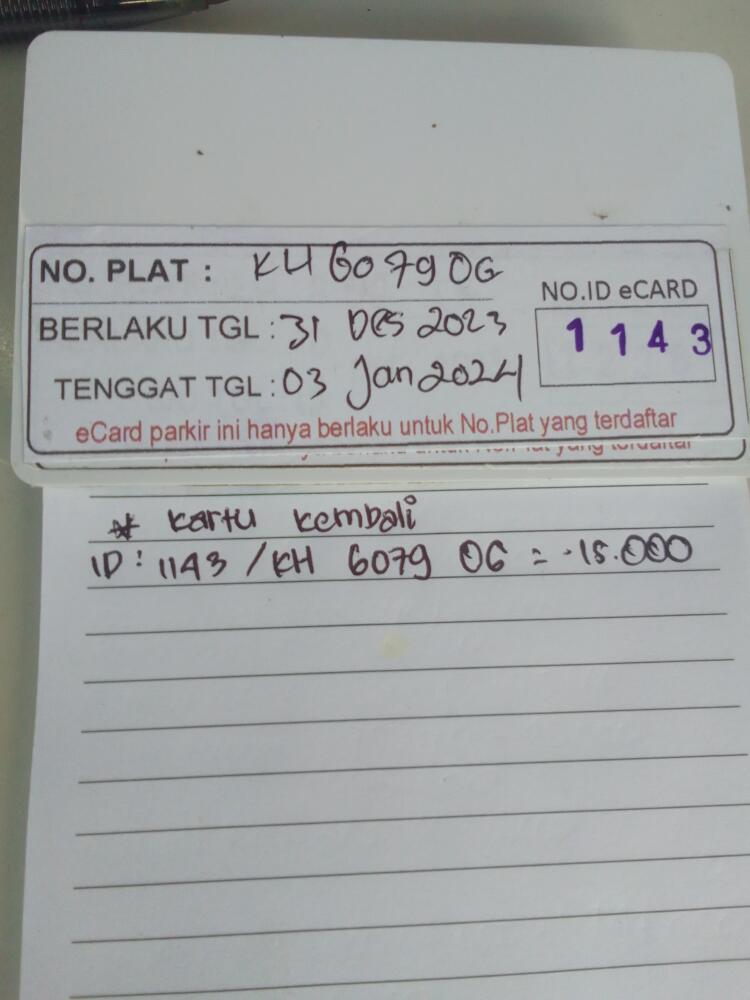 NO. PLAT : KH 6079 OG
NO.ID eCARD
BERLAKU TGL : 31 Des 2023
1 1 4 3
TENGGAT TGL : 03 Jan 2024
eCard parkir ini hanya berlaku untuk No.Plat yang terdaftar
* kartu kembali
ID : 1143 / KH 6079 OG = -15.000